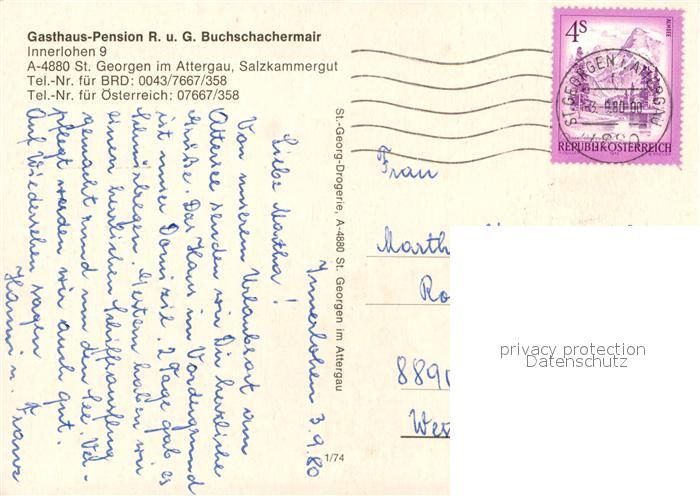 Gasthaus-Pension R. u. G. Buchschachermair
Innerlohen 9
A-4880 St. Georgen im Attergau, Salzkammergut
Tel.-Nr. für BRD: 0043/7667/358
Tel.-Nr. für Österreich: 07667/358
Innerlohen 3.9.80
Liebe Martha!
Von unserem Urlaubsort am
Attersee senden wir Dir herzliche
Grüße. Das Haus im Vordergrund
ist unser Domizil. 2 Tage gab es
Gestern haben wir
einen herrlichen Schiffsausflug
gemacht rund um den See. Ver-
pflegt werden wir auch gut.
Auf Wiedersehen sagen
Hanni u. Franz
St.-Georg-Drogerie, A-4880 St. Georgen im Attergau
1/74
4S
ALMSEE
REPUBLIK ÖSTERREICH
ST. GEORGEN I. ATTERGAU
3.-9.80-00
4880
Frau
Marth
Ro
889
Wes
privacy protection
Datenschutz